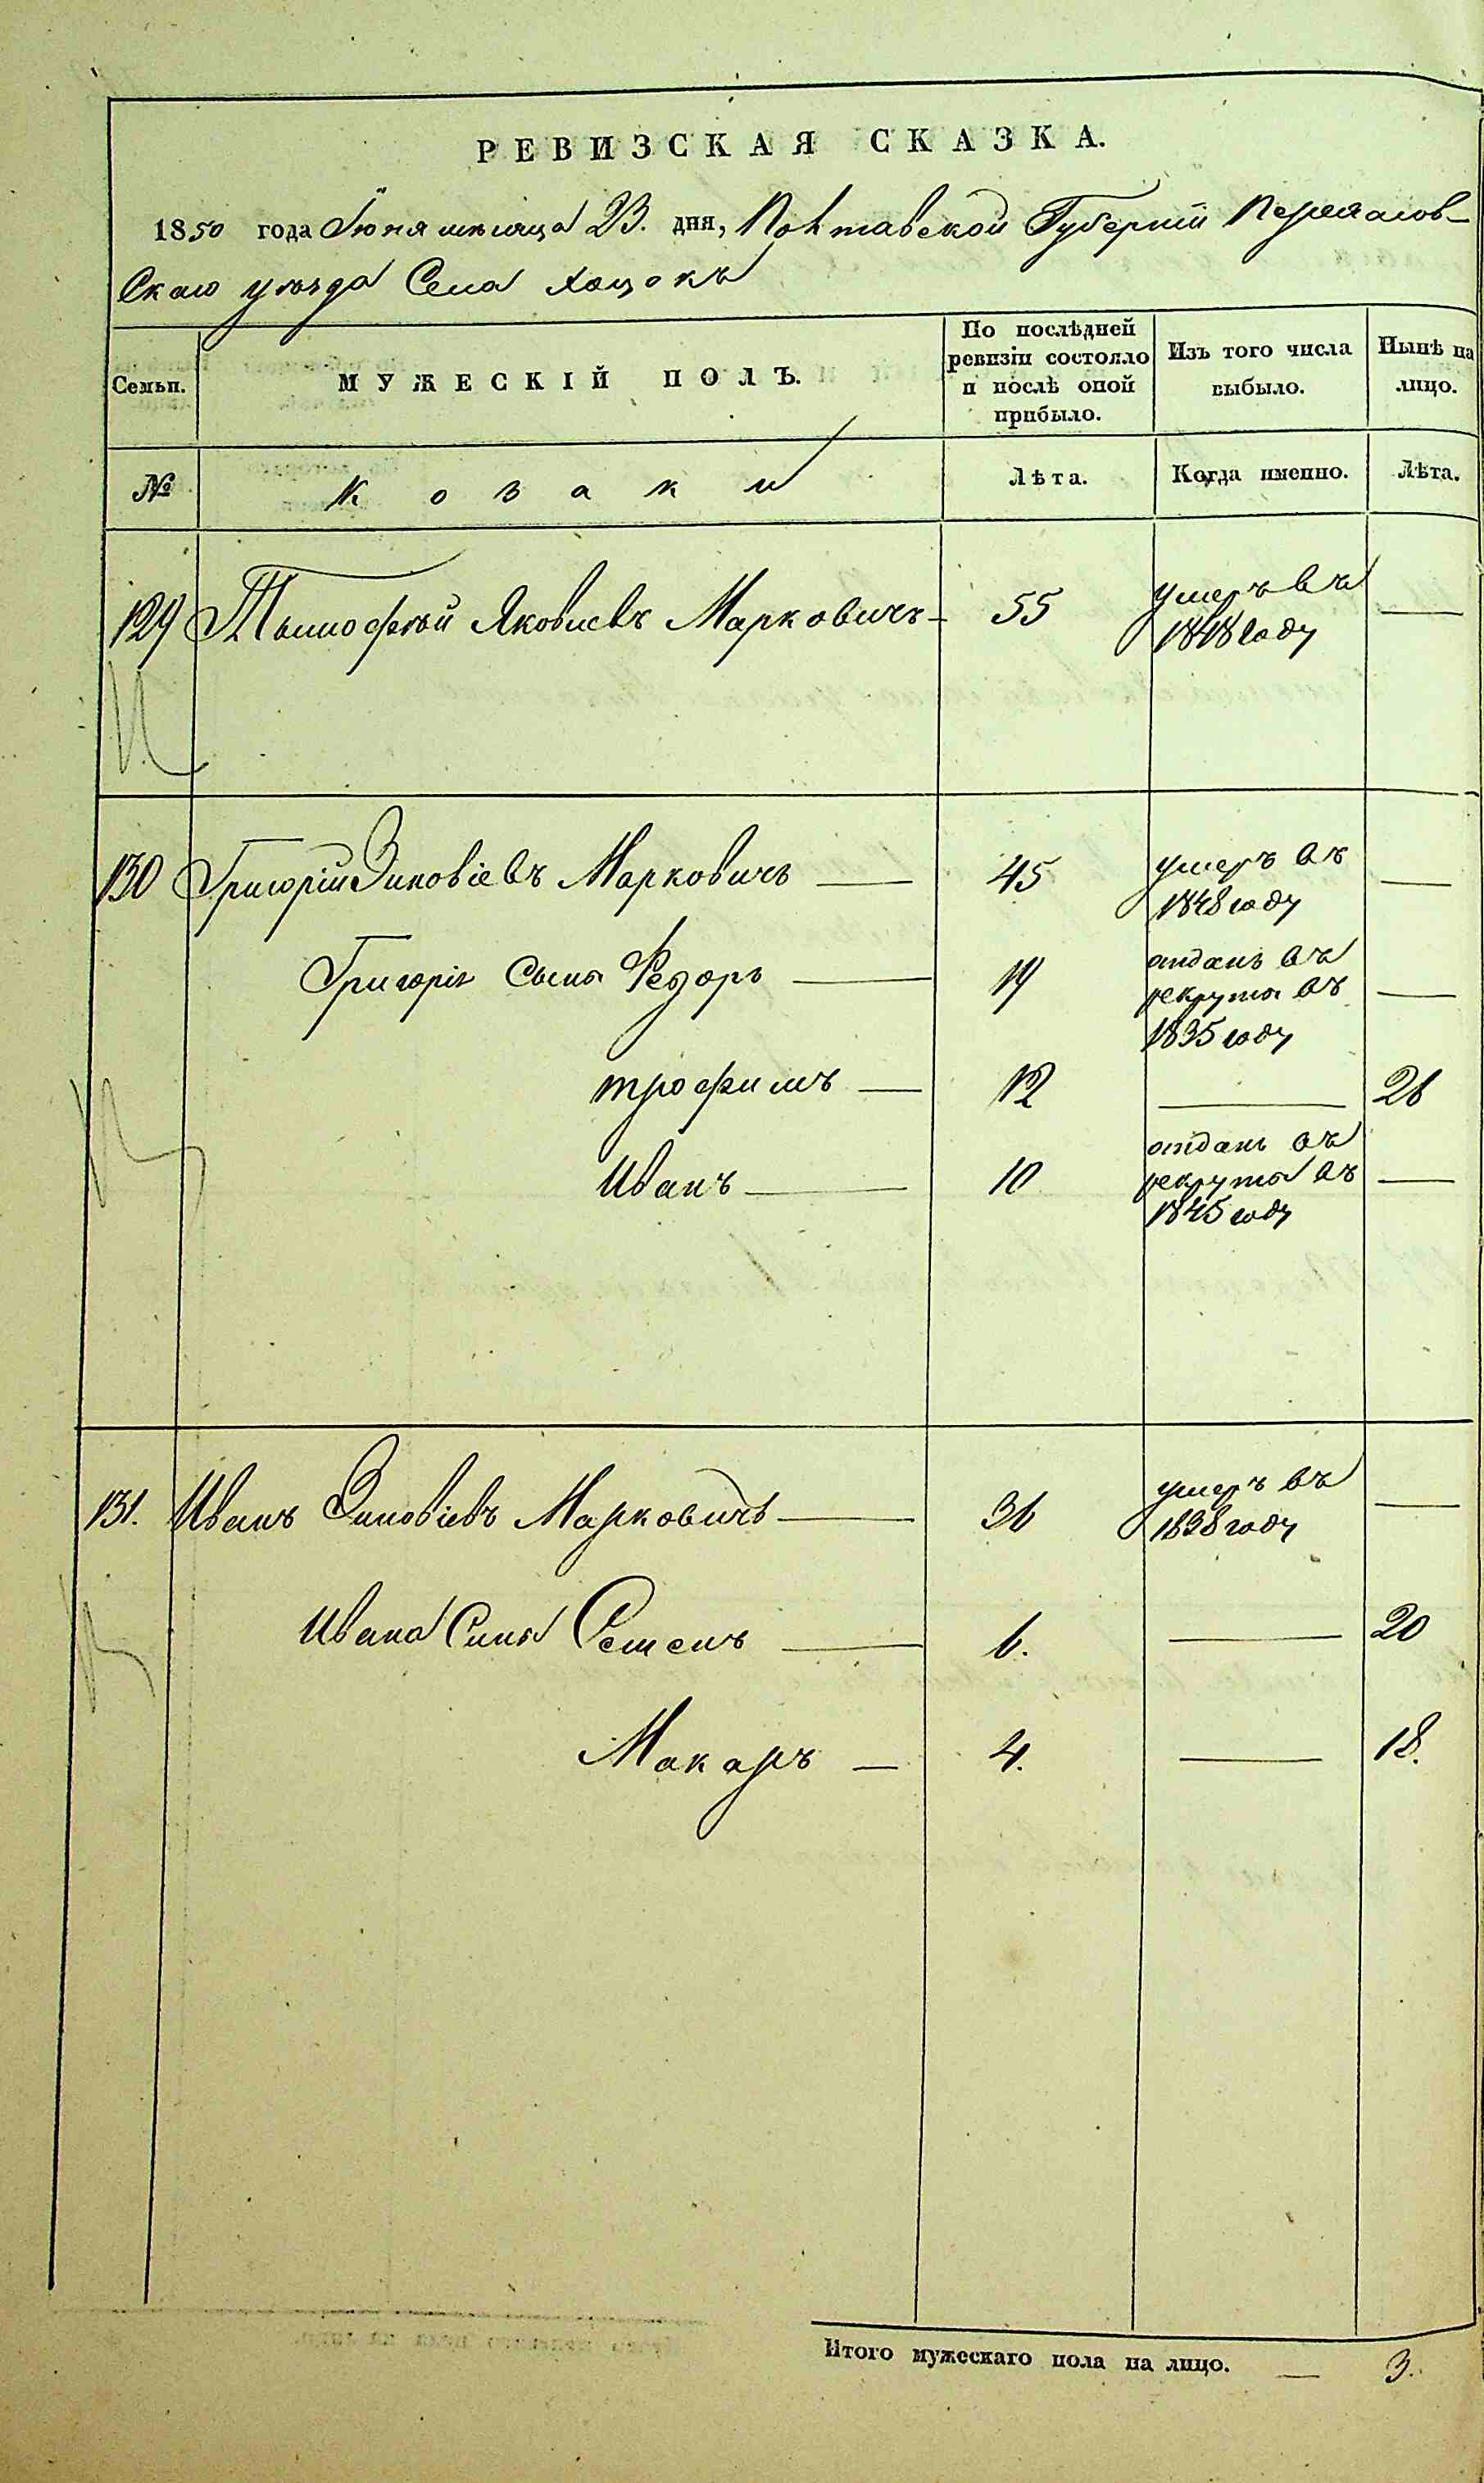 РЕВИЗСКАЯ СКАЗКА.
1850 года Июня мѣсяца 23. дня, Полтавской Губерніи Переяслов-
скаго уѣзда Села Хоцокъ
Семьи.
МУЖЕСКІЙ ПОЛЪ.
По послѣдней
ревизіи состояло
и послѣ оной
прибыло.
Изъ того числа
выбыло.
Нынѣ на
лицо.
№
Козаки
Лѣта.
Когда именно.
Лѣта.
129 Тымофѣй Яковлевъ Марковичъ 55 умеръ въ —
1848 году
130 Григорій Зиновіевъ Марковичъ — 45 умеръ въ —
1848 году
Григорія Сыны Федоръ — 19 отданъ въ
рекруты въ —
1835 году
трофимъ — 12 — 26
Иванъ — 10 отданъ въ
рекруты въ —
1845 году
131. Иванъ Зиновіевъ Марковичъ — 36 умеръ въ —
1838 году
Ивана Сыны Семенъ — 6. — 20
Макаръ — 4. — 18.
Итого мужескаго пола на лицо. — 3.